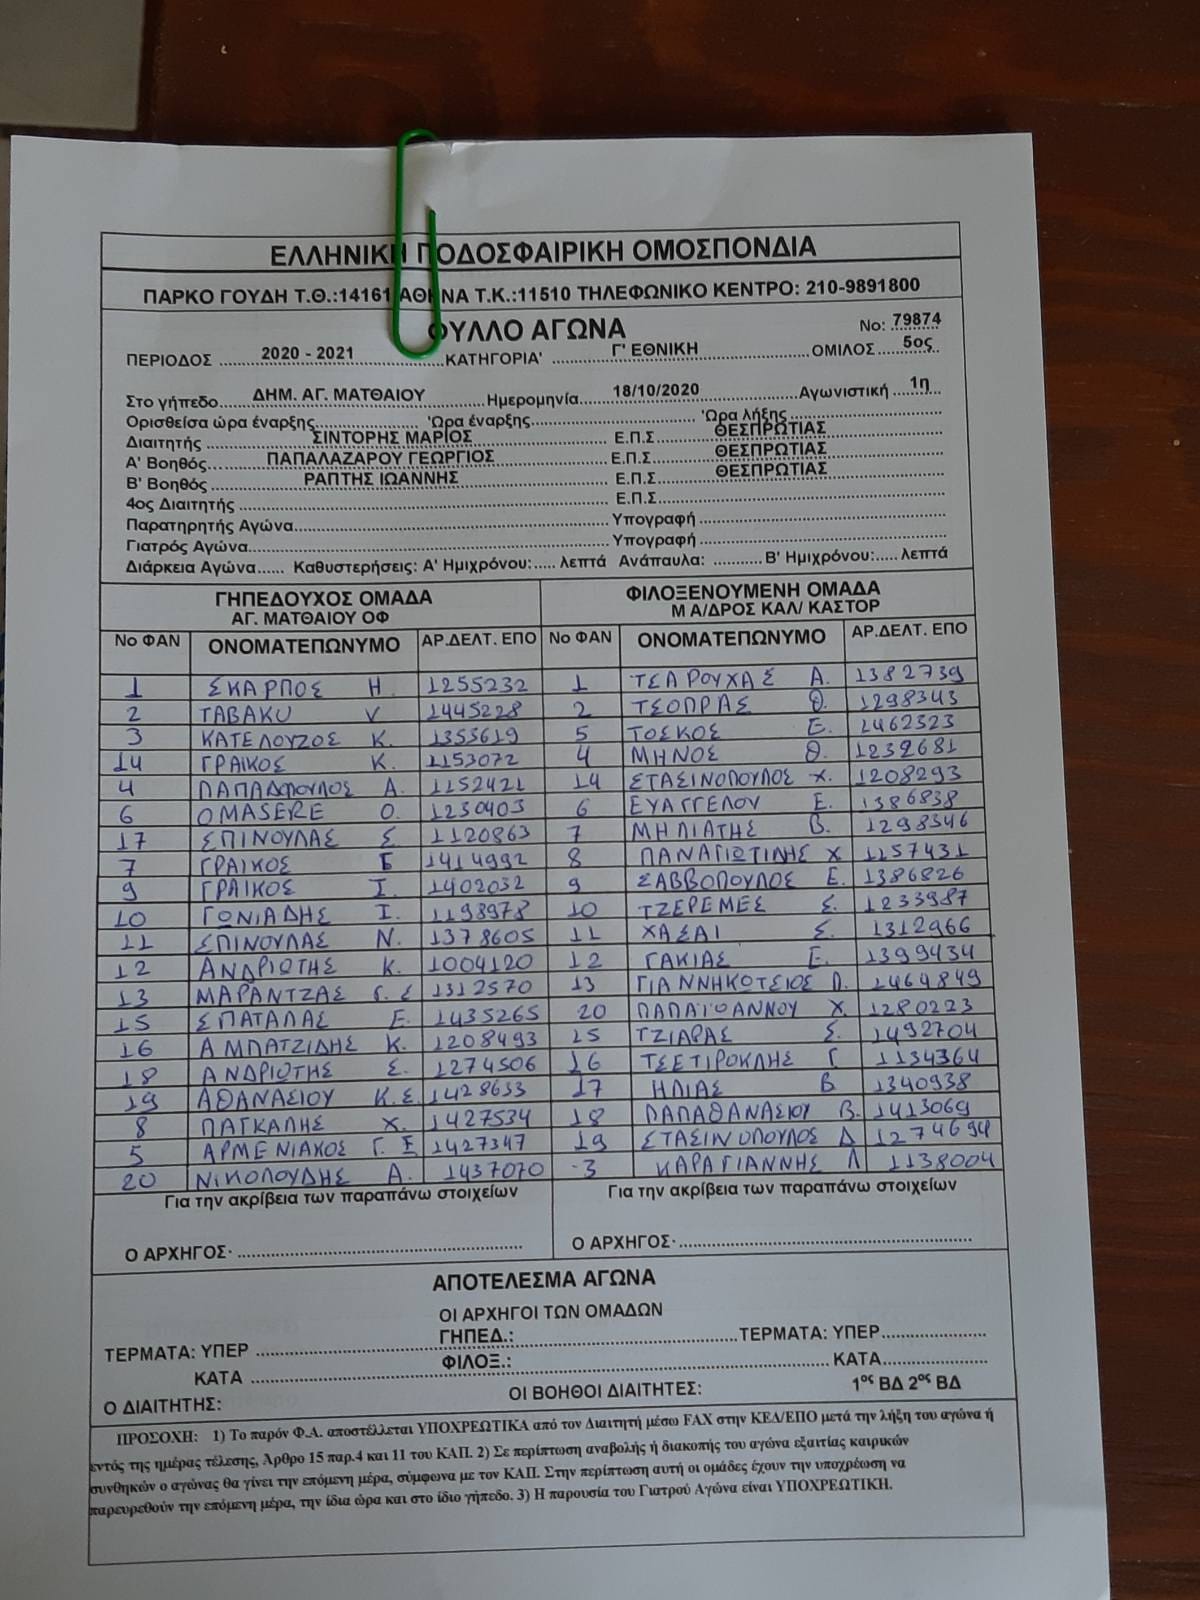 ΕΛΛΗΝΙΚΗ ΠΟΔΟΣΦΑΙΡΙΚΗ ΟΜΟΣΠΟΝΔΙΑ
ΠΑΡΚΟ ΓΟΥΔΗ Τ.Θ.:14161 ΑΘΗΝΑ Τ.Κ.:11510 ΤΗΛΕΦΩΝΙΚΟ ΚΕΝΤΡΟ: 210-9891800
ΦΥΛΛΟ ΑΓΩΝΑ Νο: 79874
ΠΕΡΙΟΔΟΣ 2020 - 2021 ΚΑΤΗΓΟΡΙΑ' Γ' ΕΘΝΙΚΗ ΟΜΙΛΟΣ 5ος
Στο γήπεδο ΔΗΜ. ΑΓ. ΜΑΤΘΑΙΟΥ Ημερομηνία 18/10/2020 Αγωνιστική 1η
Ορισθείσα ώρα έναρξης 'Ώρα έναρξης 'Ώρα λήξης
Διαιτητής ΣΙΝΤΟΡΗΣ ΜΑΡΙΟΣ Ε.Π.Σ ΘΕΣΠΡΩΤΙΑΣ
Α' Βοηθός ΠΑΠΑΛΑΖΑΡΟΥ ΓΕΩΡΓΙΟΣ Ε.Π.Σ ΘΕΣΠΡΩΤΙΑΣ
Β' Βοηθός ΡΑΠΤΗΣ ΙΩΑΝΝΗΣ Ε.Π.Σ ΘΕΣΠΡΩΤΙΑΣ
4ος Διαιτητής Ε.Π.Σ
Παρατηρητής Αγώνα Υπογραφή
Γιατρός Αγώνα Υπογραφή
Διάρκεια Αγώνα...... Καθυστερήσεις: Α' Ημιχρόνου:..... λεπτά Ανάπαυλα: ........... Β' Ημιχρόνου:..... λεπτά
ΓΗΠΕΔΟΥΧΟΣ ΟΜΑΔΑ ΦΙΛΟΞΕΝΟΥΜΕΝΗ ΟΜΑΔΑ
ΑΓ. ΜΑΤΘΑΙΟΥ ΟΦ Μ Α/ΔΡΟΣ ΚΑΛ/ ΚΑΣΤΟΡ
Νο ΦΑΝ ΟΝΟΜΑΤΕΠΩΝΥΜΟ ΑΡ.ΔΕΛΤ. ΕΠΟ Νο ΦΑΝ ΟΝΟΜΑΤΕΠΩΝΥΜΟ ΑΡ.ΔΕΛΤ. ΕΠΟ
1 ΣΚΑΡΠΟΣ Η. 1255232 1 ΤΣΑΡΟΥΧΑΣ Α. 1382739
2 TABAKU V 1445228 2 ΤΣΟΠΡΑΣ Θ. 1298343
3 ΚΑΤΕΛΟΥΖΟΣ Κ. 1353619 5 ΤΟΣΚΟΣ Ε. 1462323
14 ΓΡΑΙΚΟΣ Κ. 1153072 4 ΜΗΝΟΣ Θ. 1232681
4 ΠΑΠΑΔΟΠΟΥΛΟΣ Α. 1152421 14 ΣΤΑΣΙΝΟΠΟΥΛΟΣ Χ. 1208293
6 OMASERE O. 1230403 6 ΕΥΑΓΓΕΛΟΥ Ε. 1386838
17 ΣΠΙΝΟΥΛΑΣ Σ 1120863 7 ΜΗΛΙΑΤΗΣ Β. 1298346
7 ΓΡΑΙΚΟΣ Γ 1414992 8 ΠΑΝΑΓΙΩΤΙΔΗΣ Χ 1157431
9 ΓΡΑΙΚΟΣ Ι. 1402032 9 ΣΑΒΒΟΠΟΥΛΟΣ Ε. 1386826
10 ΓΩΝΙΑΔΗΣ Ι. 1198978 10 ΤΖΕΡΕΜΕΣ Σ. 1233987
11 ΣΠΙΝΟΥΛΑΣ Ν. 1378605 11 ΧΑΣΑΙ Σ. 1312966
12 ΑΝΔΡΙΩΤΗΣ Κ. 1004120 12 ΓΑΚΙΑΣ Ε. 1399434
13 ΜΑΡΑΝΤΖΑΣ Γ.Σ 1312570 13 ΓΙΑΝΝΗΚΟΤΣΙΟΣ Π. 1464849
15 ΣΠΑΤΑΛΑΣ Ε. 1435265 20 ΠΑΠΑΪΩΑΝΝΟΥ Χ. 1280223
16 ΑΜΠΑΤΖΙΔΗΣ Κ. 1208493 15 ΤΖΙΑΡΑΣ Σ. 1492704
18 ΑΝΔΡΙΩΤΗΣ Σ. 1274506 16 ΤΣΕΤΙΡΟΚΛΗΣ Γ 1134364
19 ΑΘΑΝΑΣΙΟΥ Κ.Σ. 1428633 17 ΗΛΙΑΣ Β 1340938
8 ΠΑΓΚΑΛΗΣ Χ. 1427534 18 ΠΑΠΑΘΑΝΑΣΙΟΥ Β. 1413069
5 ΑΡΜΕΝΙΑΚΟΣ Γ. Σ 1427347 19 ΣΤΑΣΙΝΟΠΟΥΛΟΣ Δ 1274694
20 ΝΙΚΟΛΟΥΔΗΣ Α. 1437070 3 ΚΑΡΑΓΙΑΝΝΗΣ Λ 1138004
Για την ακρίβεια των παραπάνω στοιχείων Για την ακρίβεια των παραπάνω στοιχείων
Ο ΑΡΧΗΓΟΣ· Ο ΑΡΧΗΓΟΣ·
ΑΠΟΤΕΛΕΣΜΑ ΑΓΩΝΑ
ΟΙ ΑΡΧΗΓΟΙ ΤΩΝ ΟΜΑΔΩΝ
ΤΕΡΜΑΤΑ: ΥΠΕΡ ΓΗΠΕΔ.: ΤΕΡΜΑΤΑ: ΥΠΕΡ
ΚΑΤΑ ΦΙΛΟΞ.: ΚΑΤΑ
Ο ΔΙΑΙΤΗΤΗΣ: ΟΙ ΒΟΗΘΟΙ ΔΙΑΙΤΗΤΕΣ: 1ος ΒΔ 2ος ΒΔ
ΠΡΟΣΟΧΗ: 1) Το παρόν Φ.Α. αποστέλλεται ΥΠΟΧΡΕΩΤΙΚΑ από τον Διαιτητή μέσω FAX στην ΚΕΔ/ΕΠΟ μετά την λήξη του αγώνα ή
εντός της ημέρας τέλεσης, Άρθρο 15 παρ.4 και 11 του ΚΑΠ. 2) Σε περίπτωση αναβολής ή διακοπής του αγώνα εξαιτίας καιρικών
συνθηκών ο αγώνας θα γίνει την επόμενη μέρα, σύμφωνα με τον ΚΑΠ. Στην περίπτωση αυτή οι ομάδες έχουν την υποχρέωση να
παρευρεθούν την επόμενη μέρα, την ίδια ώρα και στο ίδιο γήπεδο. 3) Η παρουσία του Γιατρού Αγώνα είναι ΥΠΟΧΡΕΩΤΙΚΗ.